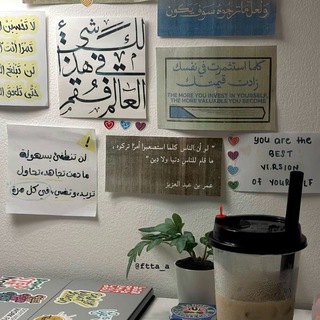 ولعل ما ترجوه سوف يكون
لا تحسبن ا
تمرا أنت
لن تبلغ ا
حتى تلعق
لك شيء
في هذا
العالم فقم
كلما استثمرت في نفسك
زادت قيمتك
THE MORE YOU INVEST IN YOURSELF,
THE MORE VALUABLE YOU BECOME
لن تنطفئ بسهولة
ما دمت تجاهد، تحاول
تزيد، وتضيء في كل مرة
" لو أن الناس كلما استصعبوا أمرًا تركوه ,
ما قام للناس دنيا ولا دين "
عمر بن عبد العزيز
you are the
BEST
VERSION
OF YOURSELF
@ftta_a